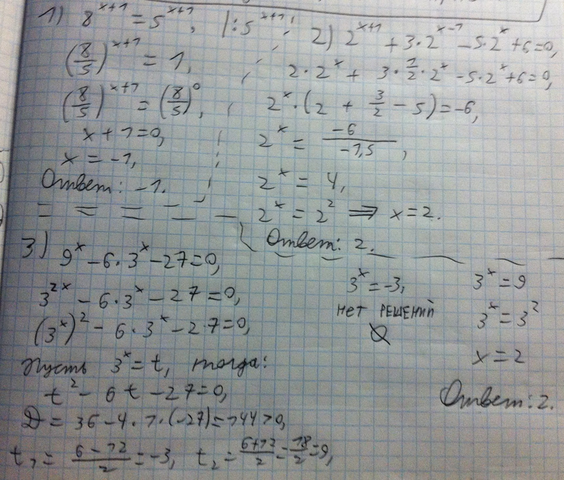 1) 8^{x+1} = 5^{x+1}, |:5^{x+1};
(8/5)^{x+1} = 1,
(8/5)^{x+1} = (8/5)^0
x+1=0,
x=-1,
Ответ: -1.
2) 2^{x+1} + 3·2^{x-1} - 5·2^x + 6=0,
2·2^x + 3·1/2·2^x - 5·2^x + 6=0,
2^x·(2 + 3/2 - 5) = -6,
2^x = -6/-1,5,
2^x = 4,
2^x = 2^2 ⇒ x=2.
Ответ: 2.
3) 9^x - 6·3^x - 27=0,
3^{2x} - 6·3^x - 27=0,
(3^x)^2 - 6·3^x - 27=0,
Пусть 3^x = t, тогда:
t^2 - 6t - 27=0,
D = 36-4·1·(-27)=144>0,
t_1 = (6-12)/2 = -3, t_2 = (6+12)/2 = 18/2 = 9,
3^x = -3,
нет решений
∅
3^x = 9
3^x = 3^2
x = 2
Ответ: 2.